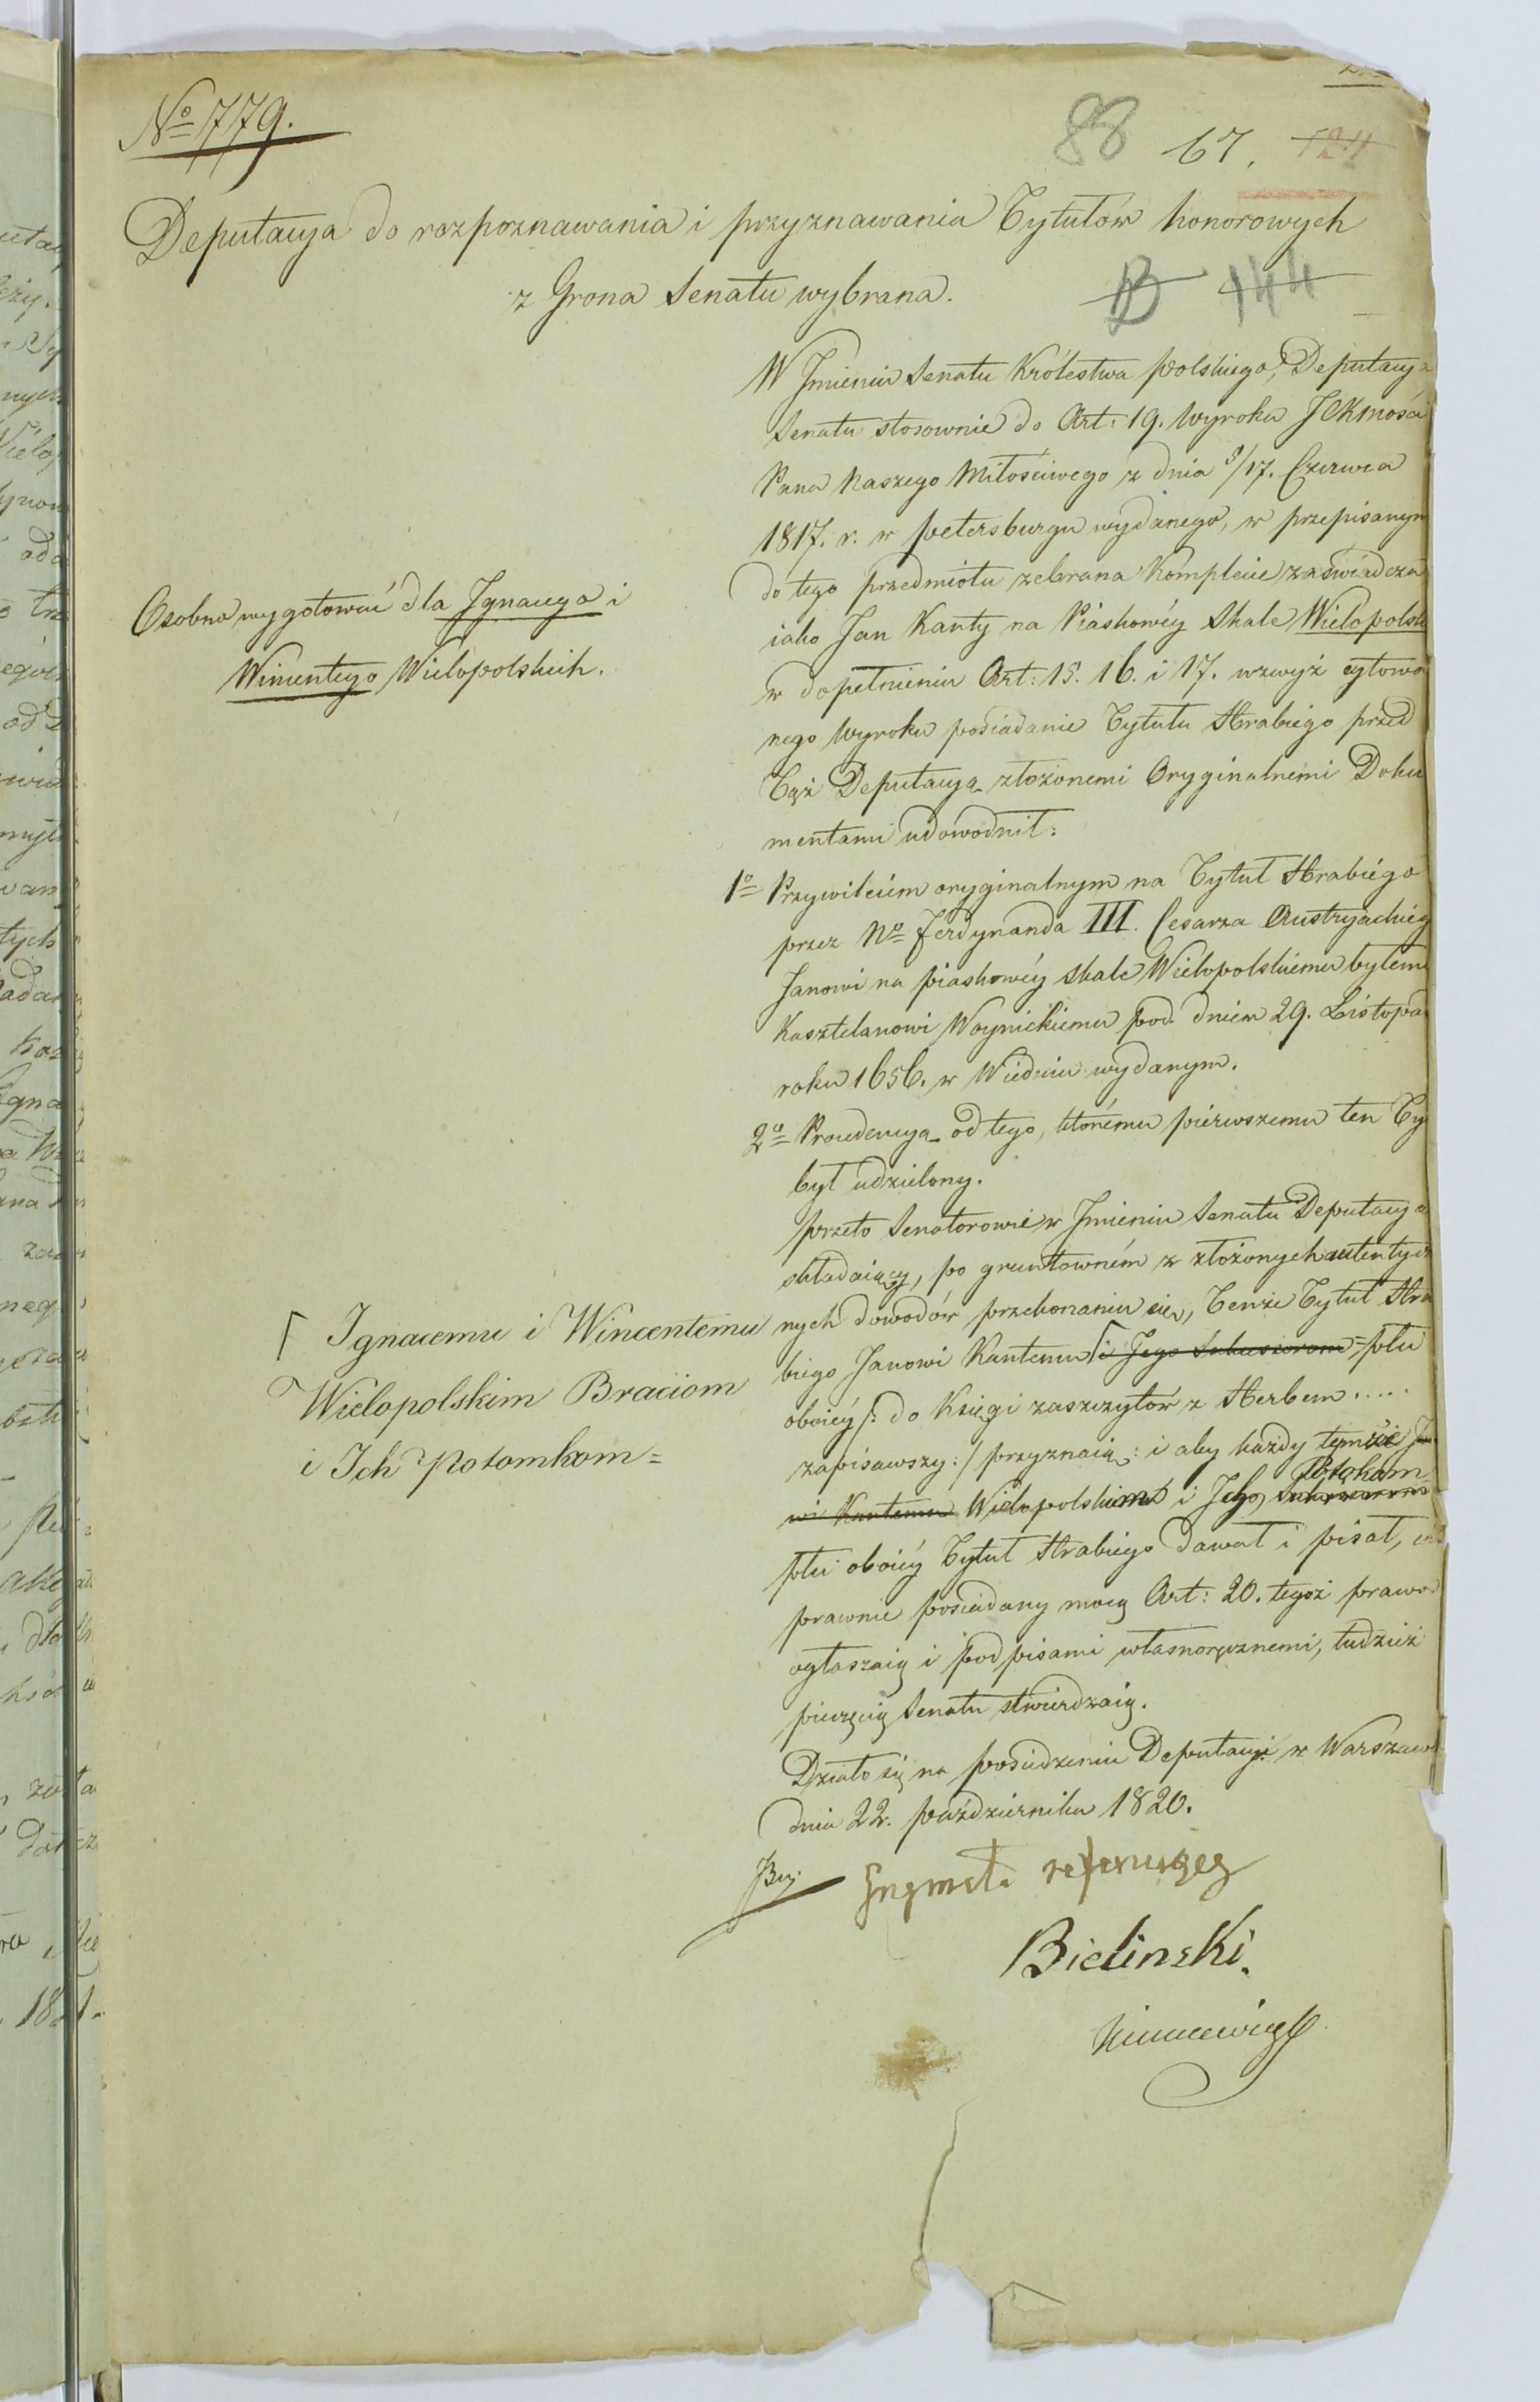 No 779.
88 67. 124
Deputacya do rozpoznawania i przyznawania Tytułów honorowych
z Grona Senatu wybrana.
B 144
W Jmieniu Senatu Królestwa Polskiego, Deputacya
Senatu stosownie do Art: 19. Wyroku JCKMości
Pana Naszego Miłościwego z dnia 5/17. Czerwca
1817. r. w Petersburgu wydanego, w przepisanym
do tego przedmiotu zebrana Komplecie zaświadcza
iako Jan Kanty na Piaskowéy Skale Wielopolski
w dopełnieniu Art: 15. 16. i 17. wzwyż cytowa
nego Wyroku posiadanie Tytułu Hrabiego przed
Tąż Deputacyą złożonemi Oryginalnemi Doku
mentami udowodnił:
Osobno wygotować dla Jgnacego i
Wincentego Wielopolskich.
1o Przywileiem oryginalnym na Tytuł Hrabiégo
przez No Ferdynanda III. Cesarza Austryackieg
Janowi na Piaskowéy Skale Wielopolskiemu byłemu
Kasztelanowi Woynickiemu pod dniem 29. Listopad
roku 1656. w Wiedniu wydanym.
2o Procedencyą od tego, któremu piérwszemu ten Ty
był udzielony.
Przeto Senatorowie w Jmieniu Senatu Deputacyą
składaiący, po gruntowném z złożonych autentycz
nych dowodów przekonaniu się, Tenże Tytuł Hra
biego Janowi Kantemu ⌈ i Jego Sukcessorom = płci
oboiéy /: do Księgi zaszczytów z Herbem .....
zapisawszy: / przyznaią: i aby każdy tymże Ja
wi Kantemu Wielopolskim i Jcho, Sukcessorom Potokom
płci oboiéy Tytuł Hrabiego dawał i pisał,
prawnie posiadany mocą Art: 20. tegoż prawa
ogłaszaią i podpisami własnoręcznemi, tudzież
pieczęcią Senatu stwierdzaią.
Działo się na posiedzeniu Deputacyi w Warszawi
dnia 22. Października 1820.
⌈ Ignacemu i Wincentemu
Wielopolskim Braciom
i Ich Potomkom =
Bielinski.
Niemcewicz